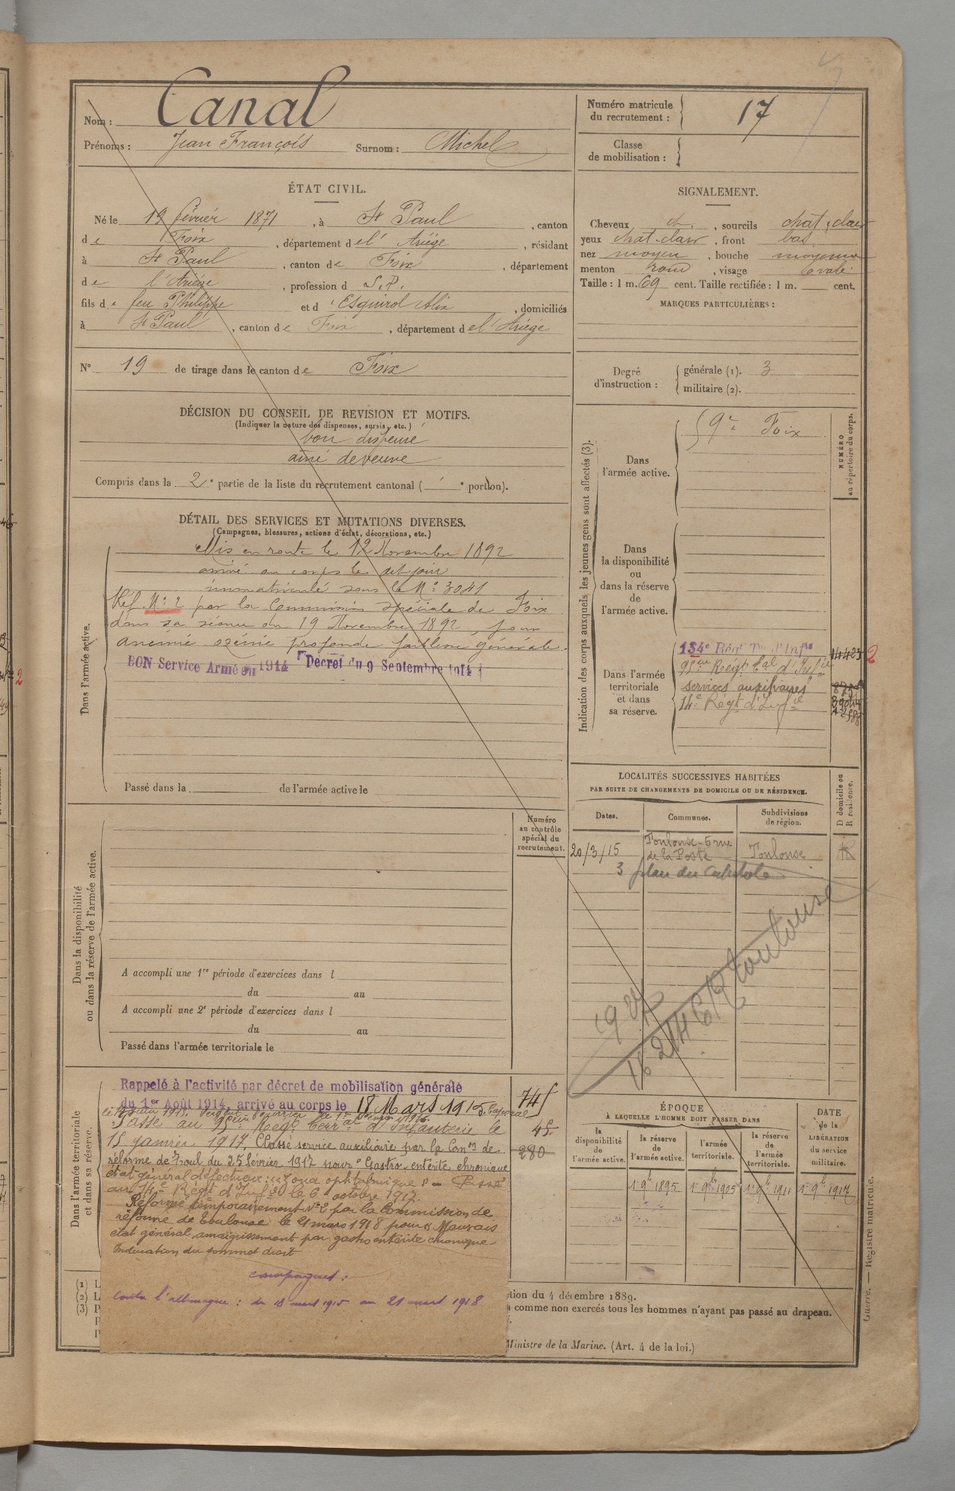 Nom : Canal
Prénoms : Jean François Surnom : Michel
Numéro matricule du recrutement : 17
Classe de mobilisation :
ÉTAT CIVIL.
Né le 19 février 1871, à St Paul, canton
de Foix, département de l'Ariège, résidant
à St Paul, canton de Foix, département
de l'Ariège, profession d S.P.
fils de feu Philippe et d'Esquirol Alix, domiciliés
à St Paul, canton de Foix, département de l'Ariège
N° 19 de tirage dans le canton de Foix
SIGNALEMENT.
Cheveux ch., sourcils chat. clair
yeux chat. clair, front bas
nez moyen, bouche moyenne
menton rond, visage ovale
Taille : 1 m. 69 cent. Taille rectifiée : 1 m. cent.
MARQUES PARTICULIÈRES :
Degré d'instruction :
générale (1). 3
militaire (2).
DÉCISION DU CONSEIL DE REVISION ET MOTIFS.
(Indiquer la nature des dispenses, sursis, etc.)
bon dispensé
aîné de veuve
Compris dans la 2e partie de la liste du recrutement cantonal ( e portion).
DÉTAIL DES SERVICES ET MUTATIONS DIVERSES.
(Campagnes, blessures, actions d'éclat, décorations, etc.)
Dans l'armée active.
Mis en route le 12 Novembre 1892
arrivé au corps le dit jour
immatriculé sous le N° 3041
Réf. N° 2 par la Commission spéciale de Foix
dans sa séance du 19 Novembre 1892, pour
anémie profonde faiblesse générale.
BON Service Armé en 1914 Décret du 9 Septembre 1914
Passé dans la de l'armée active le
Indication des corps auxquels les jeunes gens sont affectés (3).
NUMÉRO au répertoire du corps.
Dans l'armée active.
9e Foix
Dans la disponibilité ou dans la réserve de l'armée active.
Dans l'armée territoriale et dans sa réserve.
134e Régt Tal d'Infie
services auxiliaires
14e Régt d'Infie
Dans la disponibilité ou dans la réserve de l'armée active.
Numéro au contrôle spécial du recrutement.
A accompli une 1re période d'exercices dans l
du au
A accompli une 2e période d'exercices dans l
du au
Passé dans l'armée territoriale le
LOCALITÉS SUCCESSIVES HABITÉES
PAR SUITE DE CHANGEMENTS DE DOMICILE OU DE RÉSIDENCE.
Dates. Communes. Subdivisions de région. D domicile ou R résidence.
20/3/15 Toulouse 6 rue de la Poste Toulouse R
Toulouse
Dans l'armée territoriale et dans sa réserve.
Rappelé à l'activité par décret de mobilisation générale
du 1er Août 1914, arrivé au corps le 18 Mars 1915
Passé au Régt Terral d'Infanterie le
15 janvier 1917. Classé service auxiliaire par la Conm de
réforme de Toul. du 25 février 1917 pour "Gastro-entérite chronique
état général défectueux Passé
au 14e Régt d'Inf. le 6 octobre 1917.
Réformé temporairement N° 2 par la Commission de
réforme de Toulouse le 21 mars 1918 pour Mauvais
état général amaigrissement par gastro entérite chronique
Induration du sommet droit
campagnes :
Contre l'Allemagne : du 18 mars 1915 au 21 mars 1918
ÉPOQUE
À LAQUELLE L'HOMME DOIT PASSER DANS
DATE de la LIBÉRATION du service militaire.
la disponibilité de l'armée active. la réserve de l'armée active. l'armée territoriale. la réserve de l'armée territoriale.
1 9b 1895 1 9b 1905 1 9b 1911 1 9b 1917
(1)
(2)
(3)
tion du 4 décembre 1889.
comme non exercés tous les hommes n'ayant pas passé au drapeau.
Ministre de la Marine. (Art. 4 de la loi.)
Guerre. — Registre matricule.